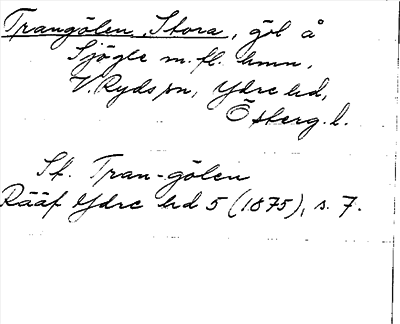 Trangölen, Stora, göl å
Sjögle m.fl. hmn,
V. Ryds sn, Ydre hd,
Österg. l.
St. Tran-gölen
Rääf Ydre hd 5 (1875), s. 7.